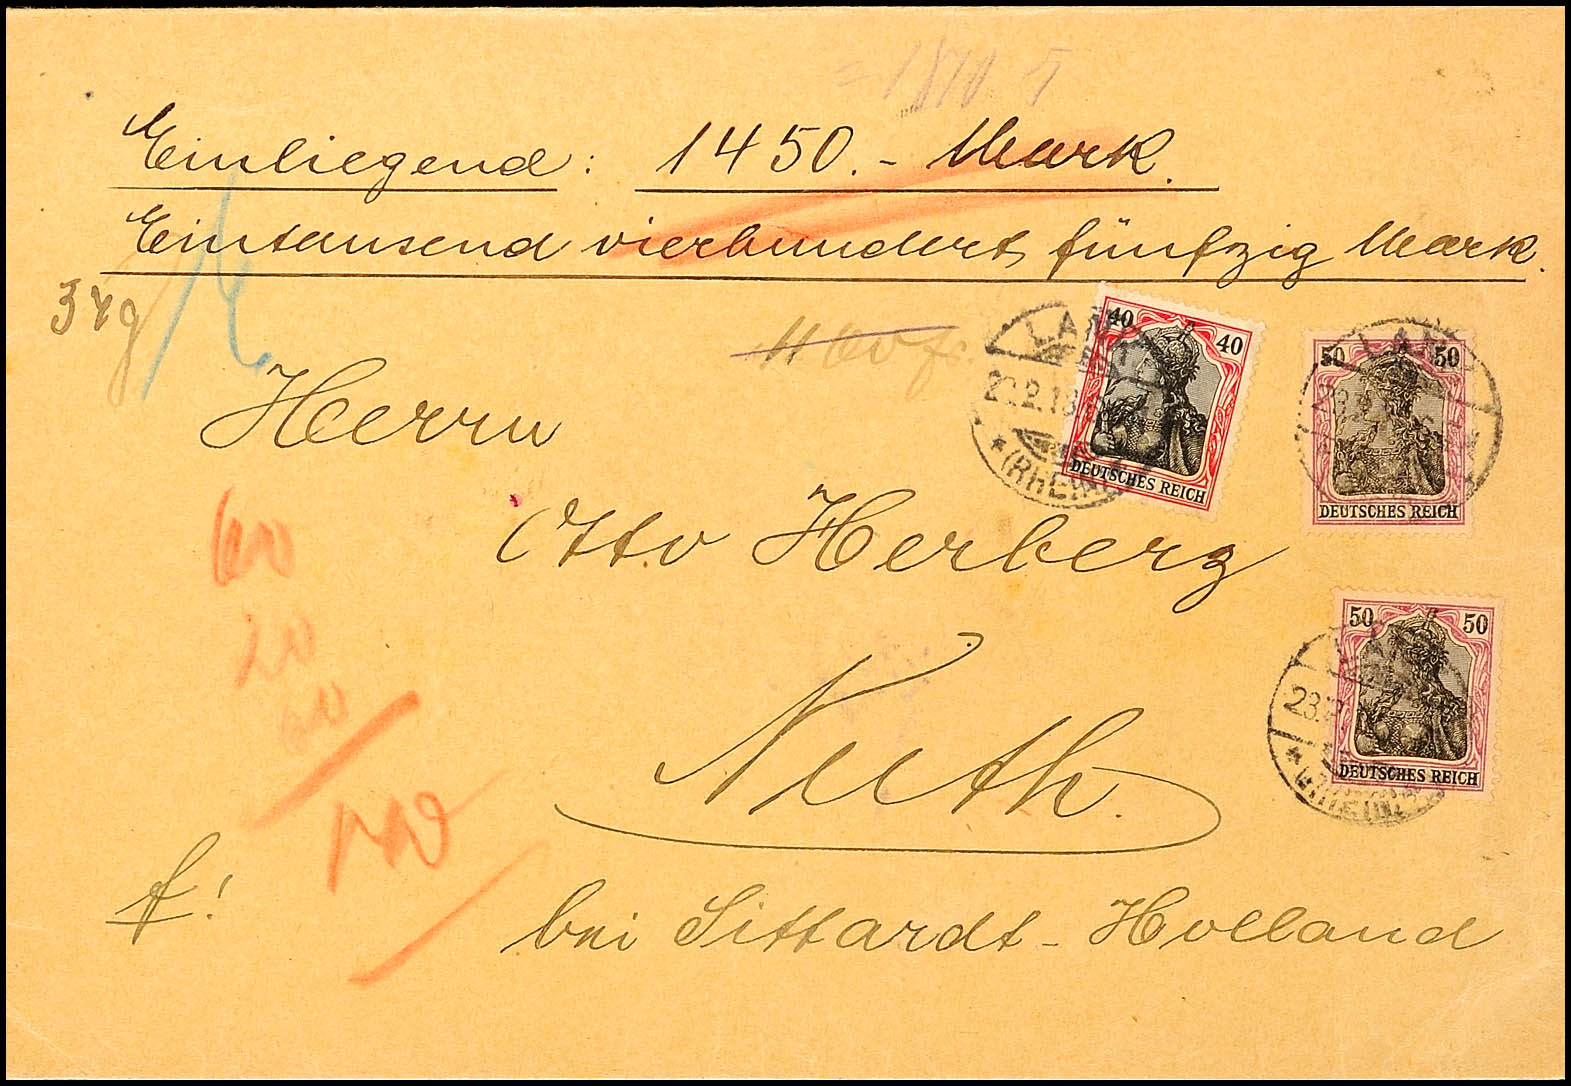 Einliegend: 1450.- Mark.
Eintausend vierhundert fünfzig Mark.
37g
Herrn
Otto Herberz
Nuth.
bei Sittardt - Holland
f!
40 40
DEUTSCHES REICH
50 50
DEUTSCHES REICH
50 50
DEUTSCHES REICH
(RHEINL)
20